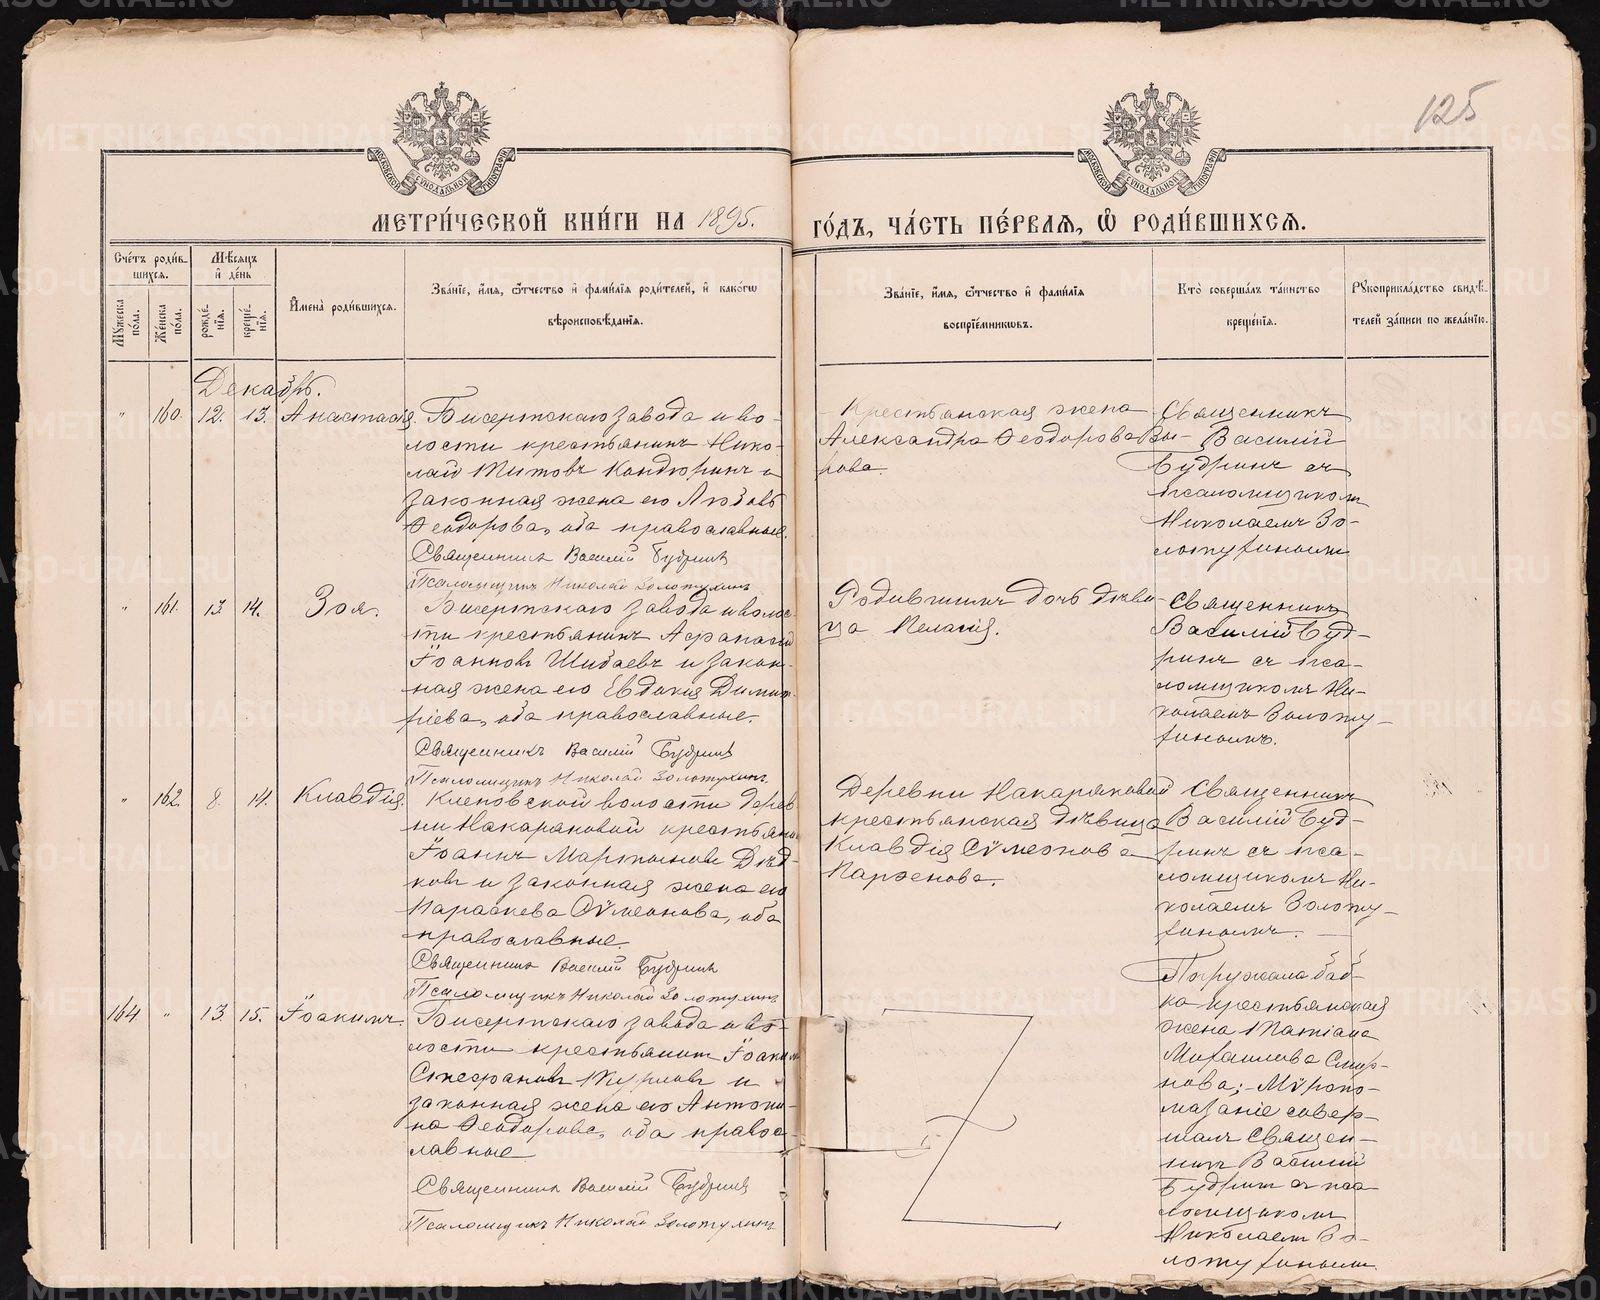 125
МЕТРИ́ЧЕСКОЙ КНИ́ГИ НА 1895.
ГО́ДЪ, ЧА́СТЬ ПЕ́РВАѦ, Ѽ РОДИ́ВШИХСѦ.
Сче́тъ роди́в-
шихсѧ.
Мѣсѧцъ
и де́нь
Мꙋжеска по́ла.
Же́нска по́ла.
рожде́-нїѧ.
креще́-нїѧ.
И҆мена̀ роди́вшихсѧ.
Зва́нїе, и҆́мѧ, ѻ҆́тчество и҆ фами́лїѧ роди́телей, и҆ како́гѡ
вѣроисповѣ́данїѧ.
Зва́нїе, и҆́мѧ, ѻ҆́тчество и҆ фами́лїѧ
воспрїе́мникѡвъ.
Кто̀ соверша́лъ та́инство
креще́нїѧ.
Рꙋкоприкла́дство свидѣ́-
телей за́писи по жела́нїю.
Декабрь.
" 160. 12. 13. Анастасія.
Бисертскаго завода и во-
лости крестьянинъ Нико-
лай Титовъ Кондюринъ и
законная жена его Любовь
Ѳеодорова, оба православные.
Священникъ Василій Будринъ
Псаломщикъ Николай Золотухинъ
Крестьянская жена
Александра Ѳеодорова
рова.
Священникъ
Василій
Будринъ съ
псаломщикомъ
Николаемъ Зо-
лотухинымъ
" 161. 13. 14. Зоя.
Бисертскаго завода и волос-
ти крестьянинъ Аѳанасій
Іоанновъ Шибаевъ и закон-
ная жена его Евдокія Димит-
ріева, оба православные.
Священникъ Василій Будринъ
Псаломщикъ Николай Золотухинъ
Родившихъ дочь дѣви-
ца Пелагія.
Священникъ
Василій Буд-
ринъ съ пса-
ломщикомъ Ни-
колаемъ Золоту-
хинымъ.
" 162. 8. 14. Клавдія.
Кленовской волости дерев
ни Накаряковой крестьянинъ
Іоаннъ Мартыновъ Дѣд-
ковъ и законная жена его
Параскева Сѵмеонова, оба
православные.
Священникъ Василій Будринъ
Псаломщикъ Николай Золотухинъ
Деревни Накаряковой
крестьянская дѣвица
Клавдія Сѵмеонова
Парѳенова.
Священникъ
Василій Буд-
ринъ съ пса-
ломщикомъ Ни-
колаемъ Золоту-
хинымъ.
164. " 13. 15. Іоакимъ.
Бисертскаго завода и во-
лости крестьянинъ Іоакимъ
Стефановъ и
законная жена его Антони-
на Ѳеодорова, оба правос-
лавные
Священникъ Василій Будринъ
Псаломщикъ Николай Золотухинъ
Погружала баб-
ка крестьянская
жена Татіана
Михаилова Смир-
нова; Мѵропо-
мазаніе совер-
шалъ Священ-
никъ Василій
Будринъ съ пса-
ломщикомъ
Николаемъ Зо-
лотухинымъ.